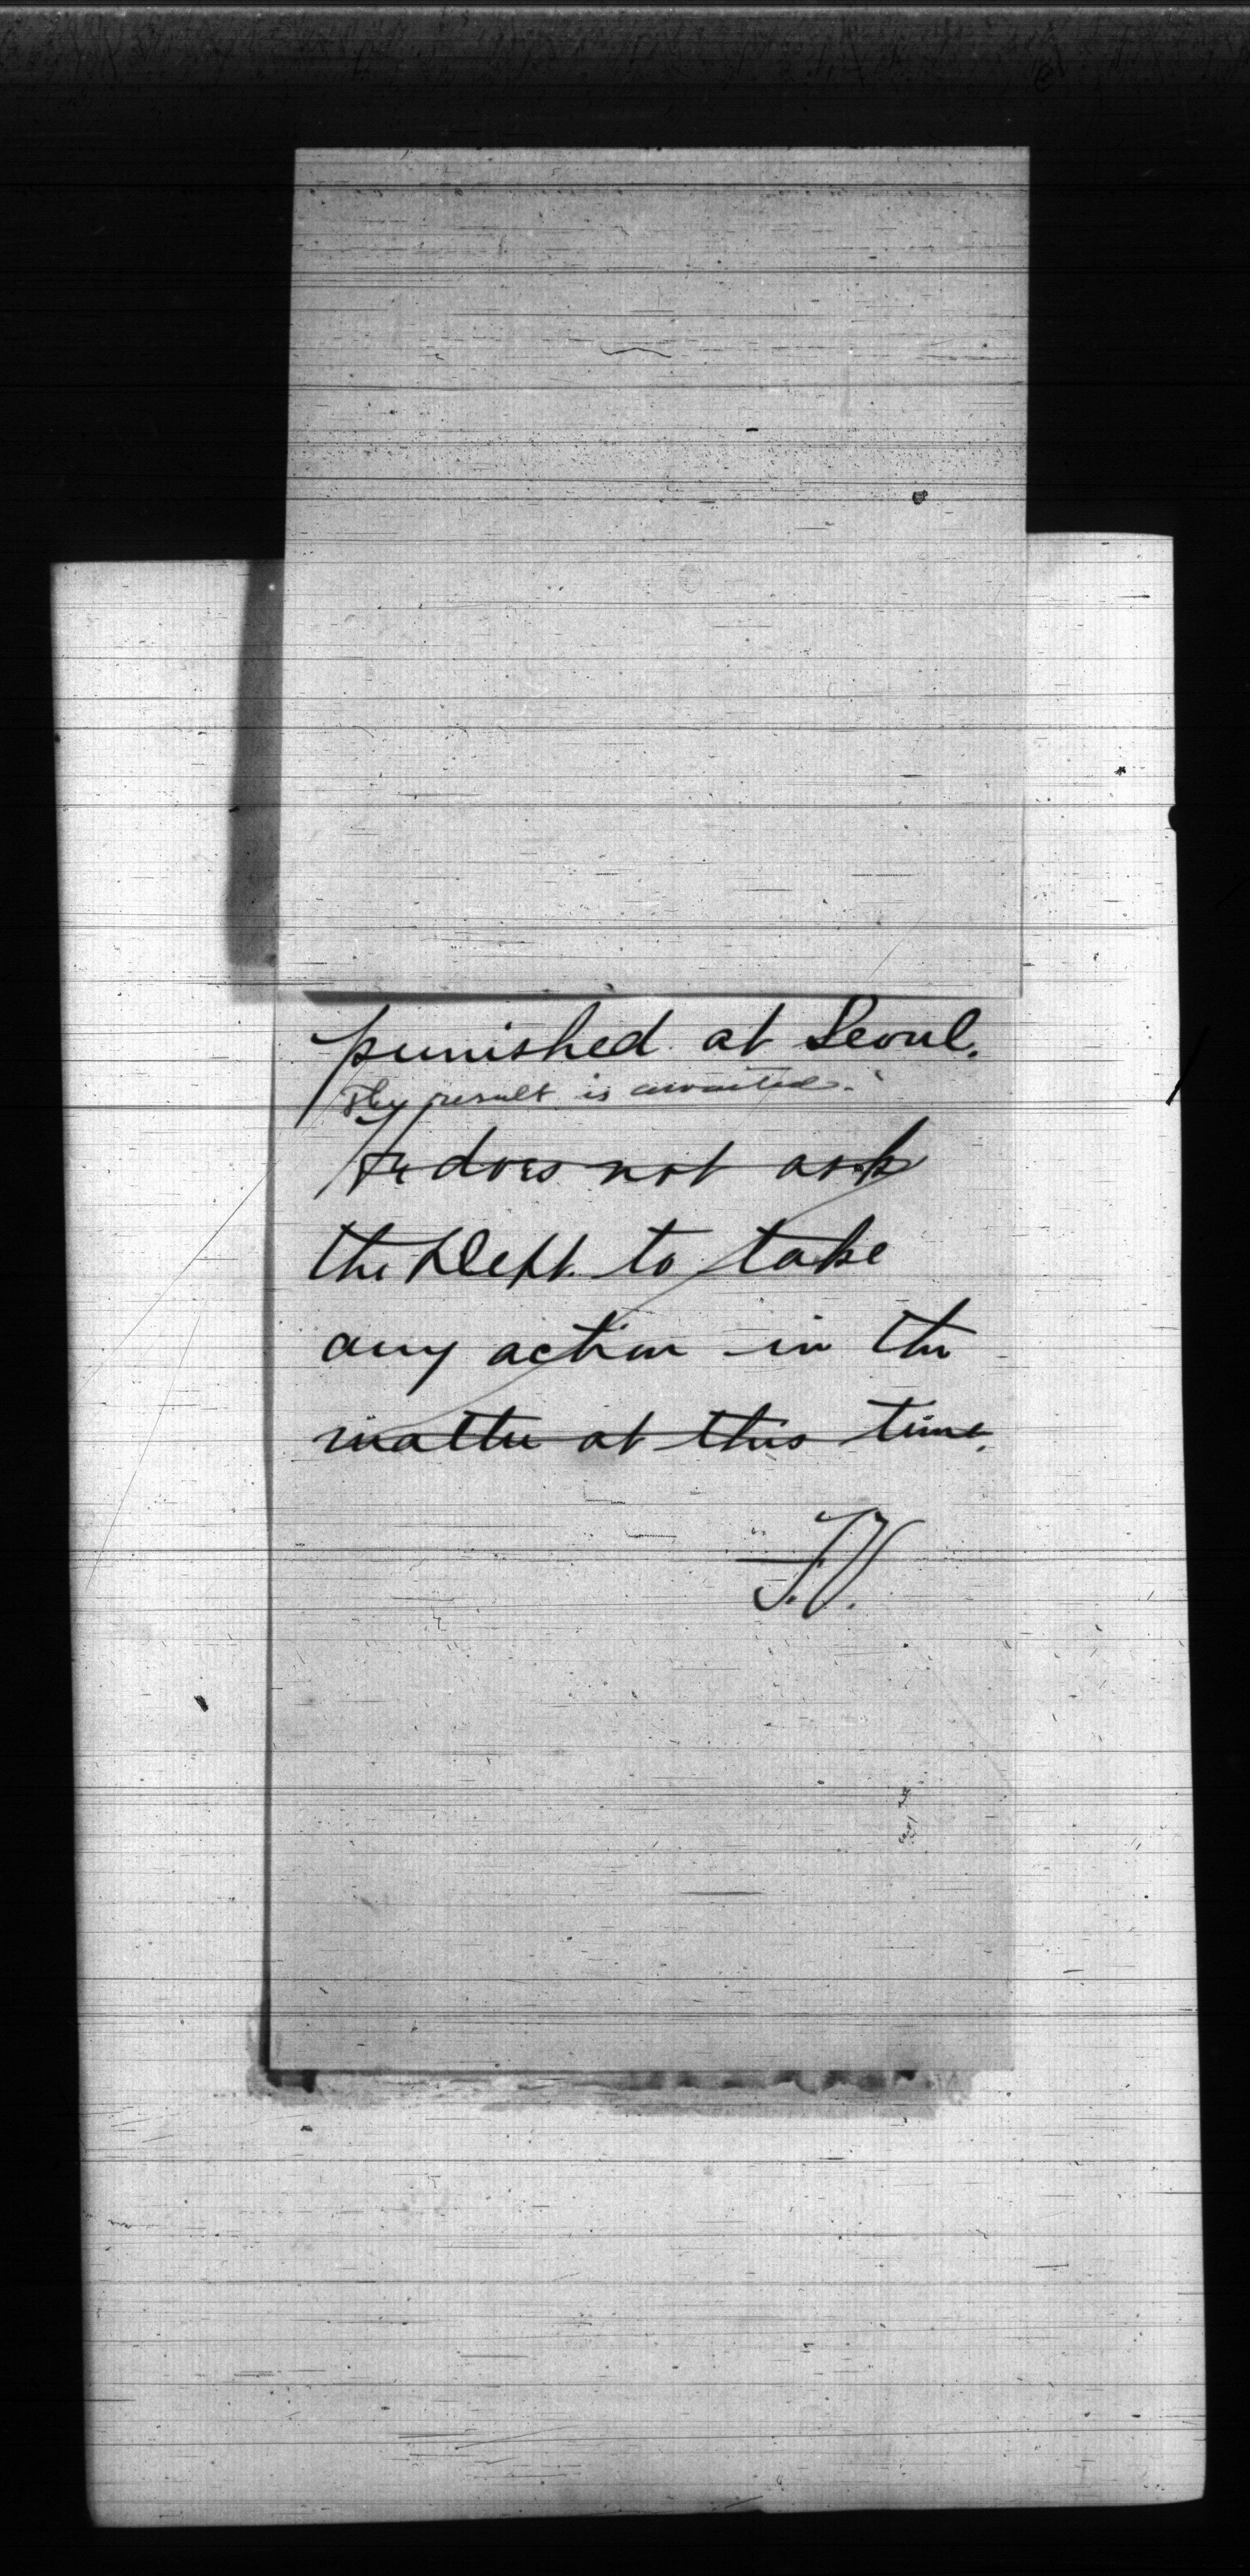 punished at Seoul.
The result is awaited.
He does not ask
the Dept. to take
any action in the
matter at this time.
F.V.